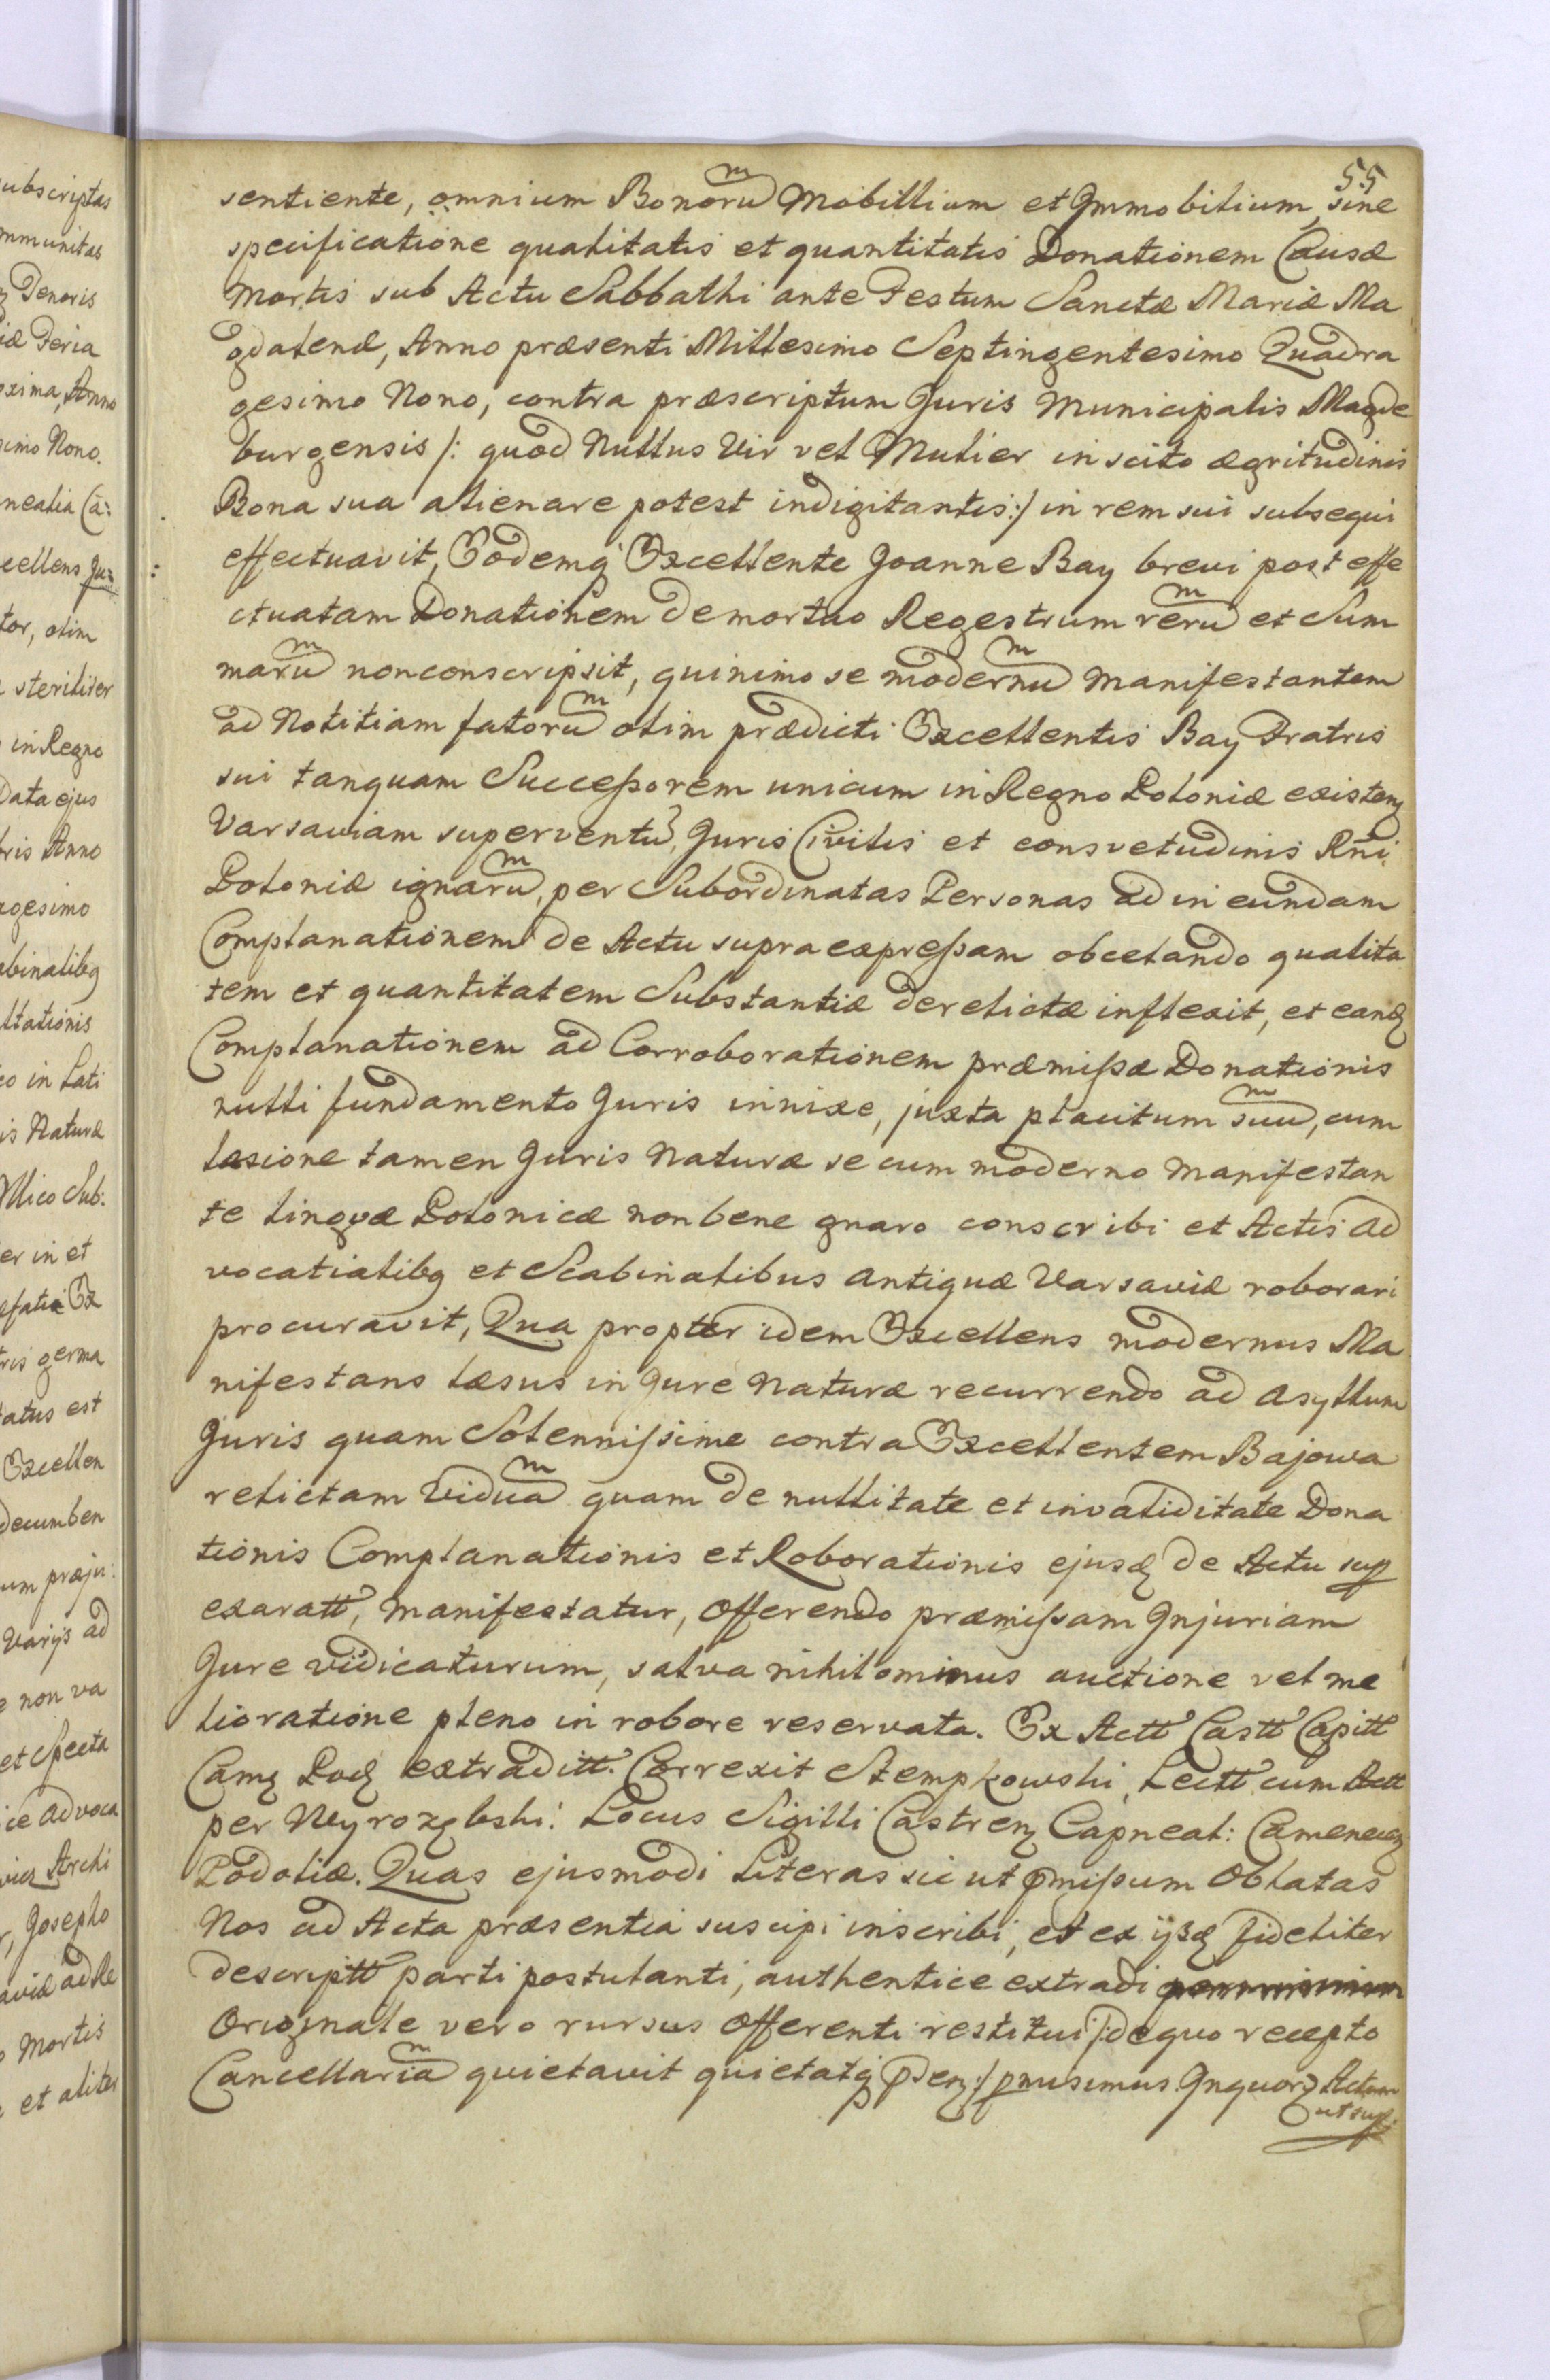 55
sentiente, omnium Bonorum Mobillium et Immobilium, sine
specificatione qualitatis et quantitatis Donationem Causæ
Mortis sub Actu Sabbathi ante Festum Sanctæ Mariæ Ma
gdalenæ, Anno præsenti Millesimo Septingentesimo Quadra
gesimo Nono, contra præscriptum Juris Municipalis Magde
burgensis /: quod Nullus Vir vel Mulier in scito ægritudinis
Bona sua alienare potest indigitantis :/ in rem sui subsequi
effectuavit, Eodemq Excellente Joanne Bay brevi post effe
ctuatam Donationem demortuo Regestrum rerum et Sum
marum nonconscripsit, quinimo se modernum Manifestantem
ad Notitiam fatorum olim prædicti Excellentis Bay Fratris
sui tanquam Successorem unicum in Regno Poloniæ existenz
Varsaviam superventu, Juris Civilis et consvetudinis Rni
Poloniæ ignarum, per Subordinatas Personas ad in eundam
Complanationem de Actu supra expressam obcelando qualita
tem et quantitatem Substantiæ derelictæ inflexit, et eandz
Complanationem ad Corroborationem præmissæ Donationis
nulli fundamento Juris innixe, juxta placitum suum, cum
læsione tamen Juris Naturæ se cum moderno Manifestan
te linqvæ Polonicæ non bene gnaro conscribi et Actis Ad
vocatialibq et Scabinalibus Antiquæ Varsaviæ roborari
procuravit, Qua propter idem Excellens modernus Ma
nifestans læsus in Jure Naturæ recurrendo ad Asyllum
Juris quam Solennissime contra Excellentem Bajowa
relictam Viduam quam de nullitate et invaliditate Dona
tionis Complanationis et Roborationis ejusdz de Actu sup
exaratt, Manifestatur, Offerendo præmissam Injuriam
Jure vidicaturum, salva nihilominus auctione vel me
lioratione pleno in robore reservata. Ex Actt Castt Capitt
Camz Podz extraditt. Correxit Stempkowski, Lectt cum Actt
per Wyrozębski: Locus Sigilli Castrenz Capneal: Camenecenz
Podoliæ. Quas ejusmodi Literas sic ut pmissum Oblatas
Nos ad Acta præsentia suscipi inscribi, et ex ijsdz fideliter
descriptt parti postulanti, authentice extradi
Originale vero rursus Offerenti restitui /: de quo recepto
Cancellariam quietavit quietatq pdenz :/ pmisimus. Inquorz Actum
ut sup.
ubscriptas
mmunitas
Denoris
iæ Feria
oxima, Anno
simo Nono.
nealia Ca:
cellens Ju=
tor, olim
steriliter
in Regno
Data ejus
tris Anno
agesimo
abinalibq
ltationis
eo in Lati
is Naturæ
Sub:
er in et
efati Ex
tris germa
tatus est
Excellen
decumben
um præju:
Varijs ad
e non va
et Specta
ice Advoca
Archi
r, Josepho
aviæ ad Re
o Mortis
et aliter